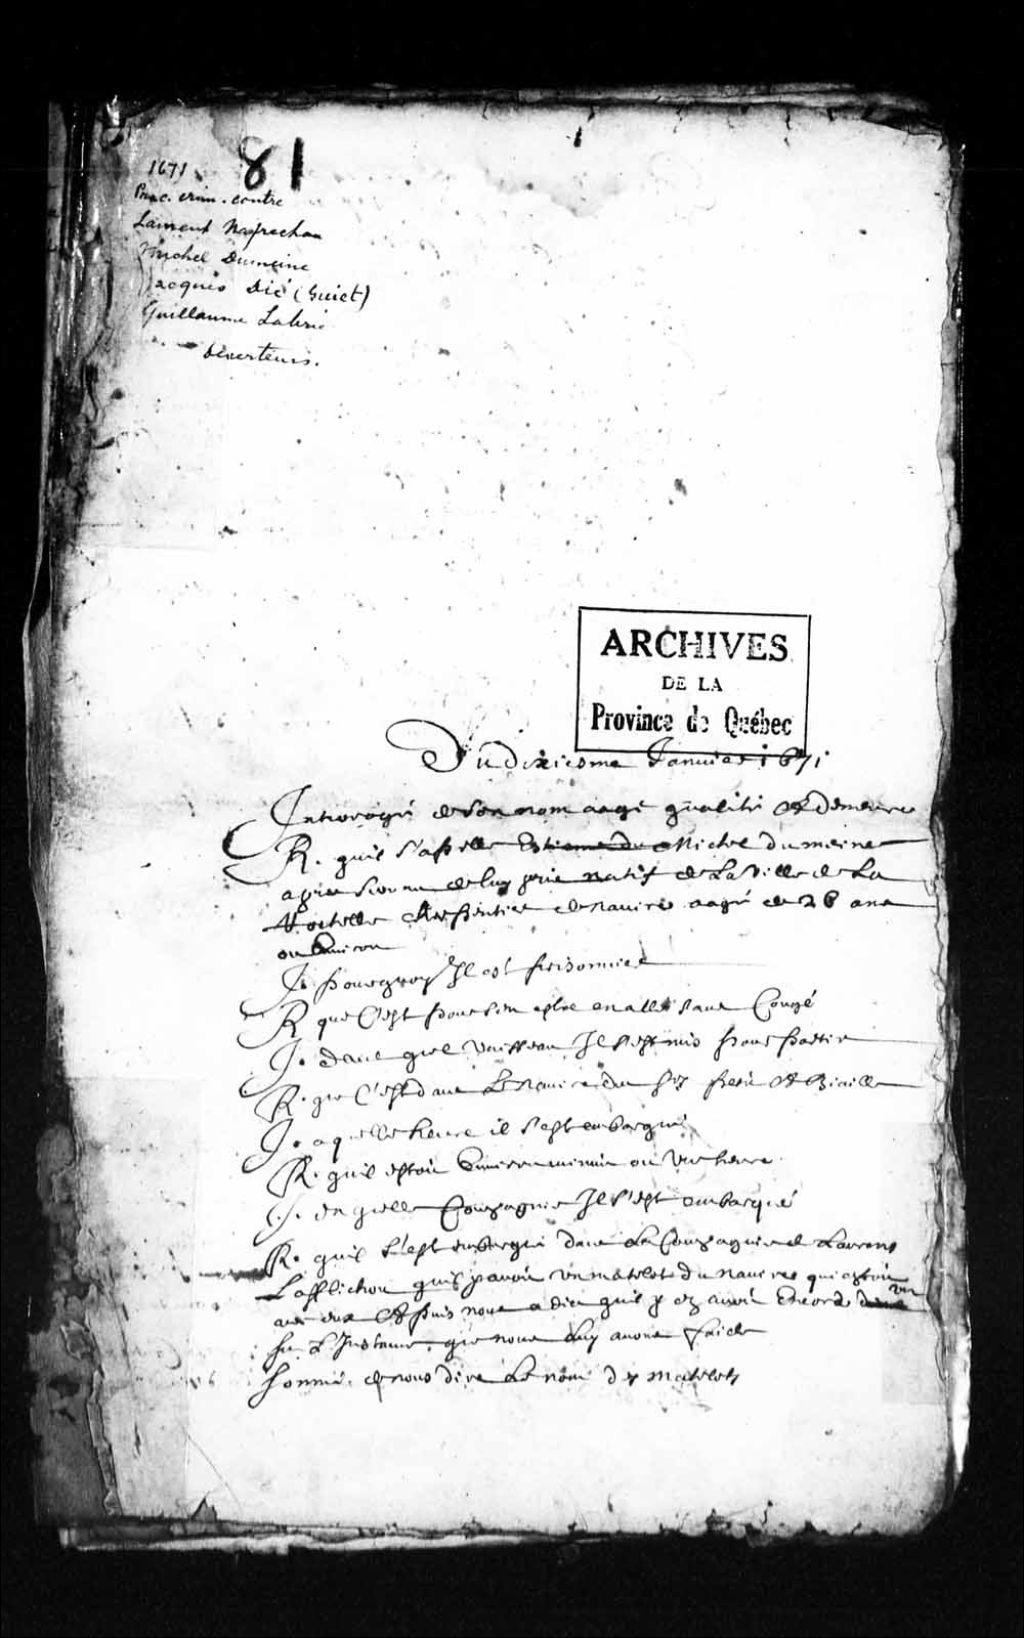 1671
81
Proc. crim. contre
Laurent
Michel Dumeine
Jacques Dié (Guiet)
Guillaume Labrie
déserteurs.
ARCHIVES
DE LA
Province de Québec
Du dixiesme Janvier 1671
Interogé de son nom aagé qualité et demeure
R. quil s'apelle Estienne du Michel dumeine
natif de La Ville de La
Rochelle Charpentier de navire aagé de 26 ans
ou Environ
J. pourquoy Il est prisonnier
R que C'est pour s'en estre en allé sans Congé
J. dans quel vaisseau Il s'est mis pour partir
R. que C'est dans Le navire du
J. a quelle heure il s'est embarqué
R. quil estoit Environ minuit ou Une heure
J. En quelle Compagnie Il s'est embarqué
R. quil s'est embarqué dans La Compagnie de Laurens
quil y avoit un matelot du navire qui estoit
avec eux Et puis nous a dict quil y en avoit Encore un
sur L'Instance que nous luy avons faicte
Sommé de nous dire Le nom des matelots